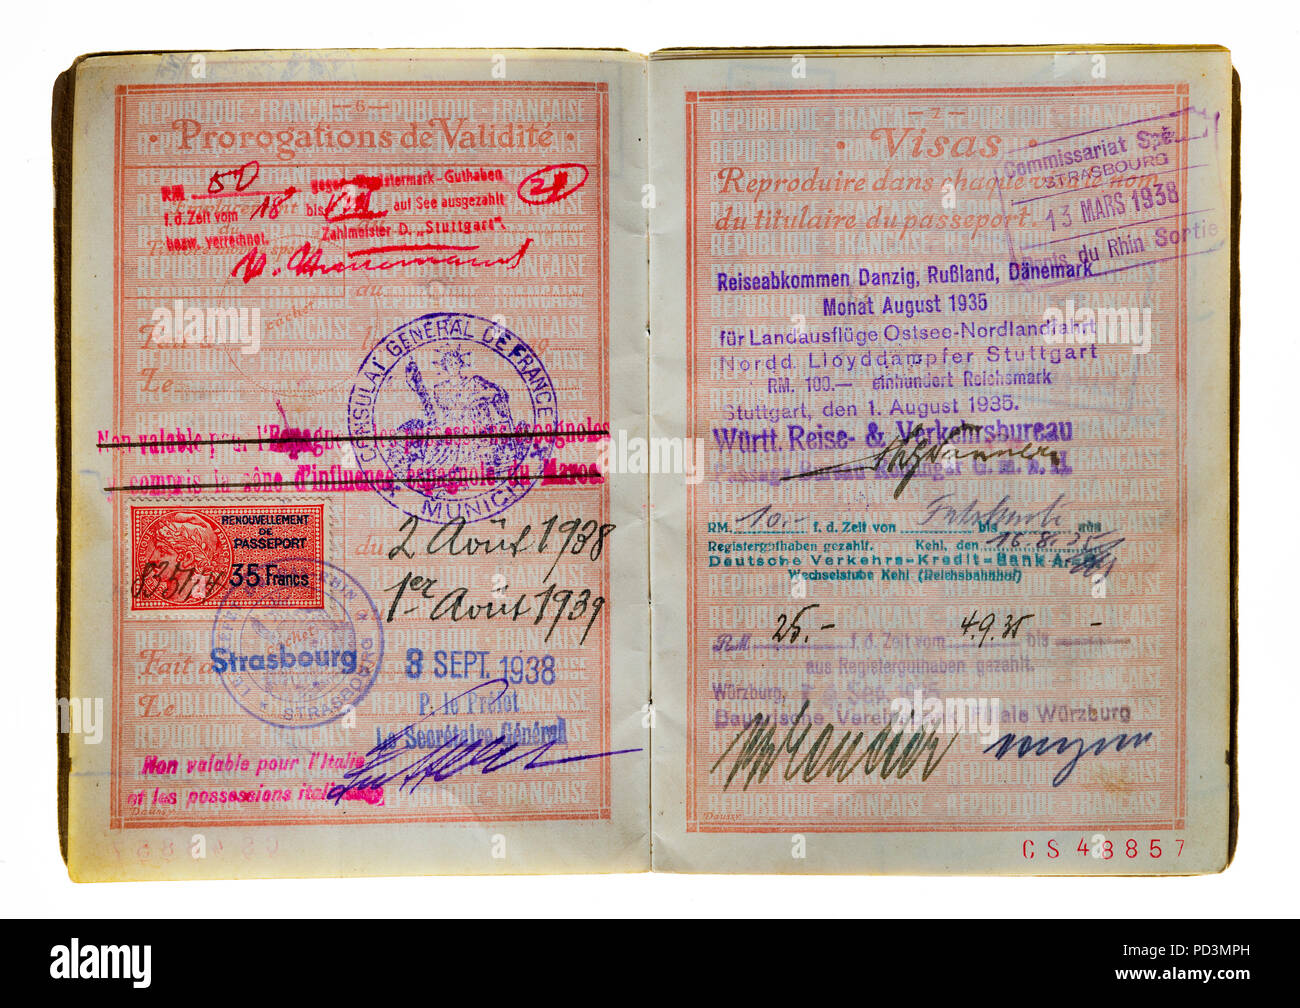 — 6 —
· Prorogations de Validité ·
RM 50 gegen Registermark-Guthaben
f. d. Zeit vom 18 bis VIII auf See ausgezahlt
bezw. verrechnet. Zahlmeister D. „Stuttgart"
du
cachet
Fait
Le
CONSULAT GENERAL DE FRANCE
MUNICH
Non valable pour l'Espagne les possessions espagnoles
y compris la zône d'influence espagnole du Maroc
RENOUVELLEMENT
DE
PASSEPORT
35 Francs
du 2 Août 1938
1er Août 1939
Fait à Strasbourg 8 SEPT. 1938
cachet
STRASBOURG
Le P. le Préfet
Le Secrétaire Général
Non valable pour l'Italie
et les possessions
Daussy
— 7 —
· Visas ·
Reproduire dans chaque visa le nom
du titulaire du passeport.
Commissariat Spé
STRASBOURG
13 MARS 1938
Ponts du Rhin Sortie
Reiseabkommen Danzig, Rußland, Dänemark
Monat August 1935
für Landausflüge Ostsee-Nordlandfahrt
Nordd. Lloyddampfer Stuttgart
RM. 100.— einhundert Reichsmark
Stuttgart, den 1. August 1935.
Württ. Reise- & Verkehrsbureau
G. m. b. H.
RM. 10.- f. d. Zeit von bis aus
Registerguthaben gezahlt. Kehl, den 16.8.35
Deutsche Verkehrs-Kredit-Bank A.-G.
Wechselstube Kehl (Reichsbahnhof)
RM 25.- f. d. Zeit vom 4.9.35 bis -
aus Registerguthaben gezahlt.
Würzburg, Sep. 1935
Bayerische Vereinsbank Filiale Würzburg
Daussy
CS 48857
alamy
Image ID: PD3MPH
www.alamy.com